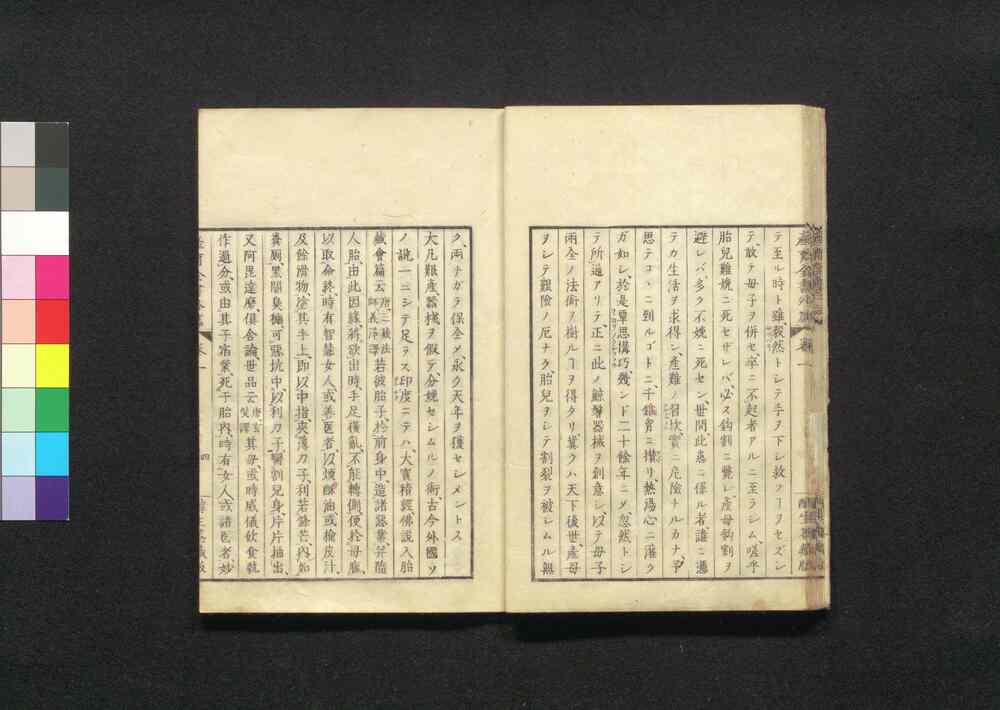 テ至ル時ト雖毅然トシテ手ヲ下シ救フヿヲセズシ
テ、敢テ母子ヲ併セ、卒ニ不起者アルニ至ラシム、嗟乎
胎兒難娩ニ死セザレバ必ス鈎割ニ斃レ産母鈎割ヲ
避レバ、多ク不娩ニ死セン、世間此患ニ係ル者、誰ニ憑
テカ生活ヲ求得ン、産難ノ
坎實ニ危險ナルカナ、予
思テコヽニ到ルゴトニ、千錐胷ニ攅リ、熱湯心ニ灌ク
ガ如シ、於是覃思搆巧、幾ンド二十餘年ニ〆、忽然トシ
テ所遇アリテ、正ニ此ノ
器械ヲ創意シ、以テ母子
兩全ノ法術ヲ樹ルヿヲ得タリ、冀クハ天下後世、産母
ヲシテ艱險ノ厄ナク、胎兒ヲシテ割裂ヲ被シムル無
ク、兩ナガラ保全〆、永ク天年ヲ獲セシメントス
大凡艱産、器械ヲ假テ、分娩セシムルノ術、古今外國ソ
ノ説一ニシテ足ラス、印度ニテハ、大寳積經佛説入胎
藏會篇云、唐三藏法師義淨譯若彼胎子、於前身中、造諸惡業、并墮
人胎、由此因縁、將欲出時、手足横亂、不能轉側、便於母腹
以取命終、時有智慧女人、或善醫者、以煖酥油、或楡皮汁
及餘滑物、塗其手上、即以中指、夾薄刀子、利若鋒芒、内如
糞厠、黒闇臭穢、可惡抗中、以利刀子、臠割兒身、片片抽出、
又阿毘達磨倶舍論世品云、唐玄奘譯其母或時威儀飲食執
作過分、或由其子宿業、死于胎内、時有女人或諸醫者、妙
四